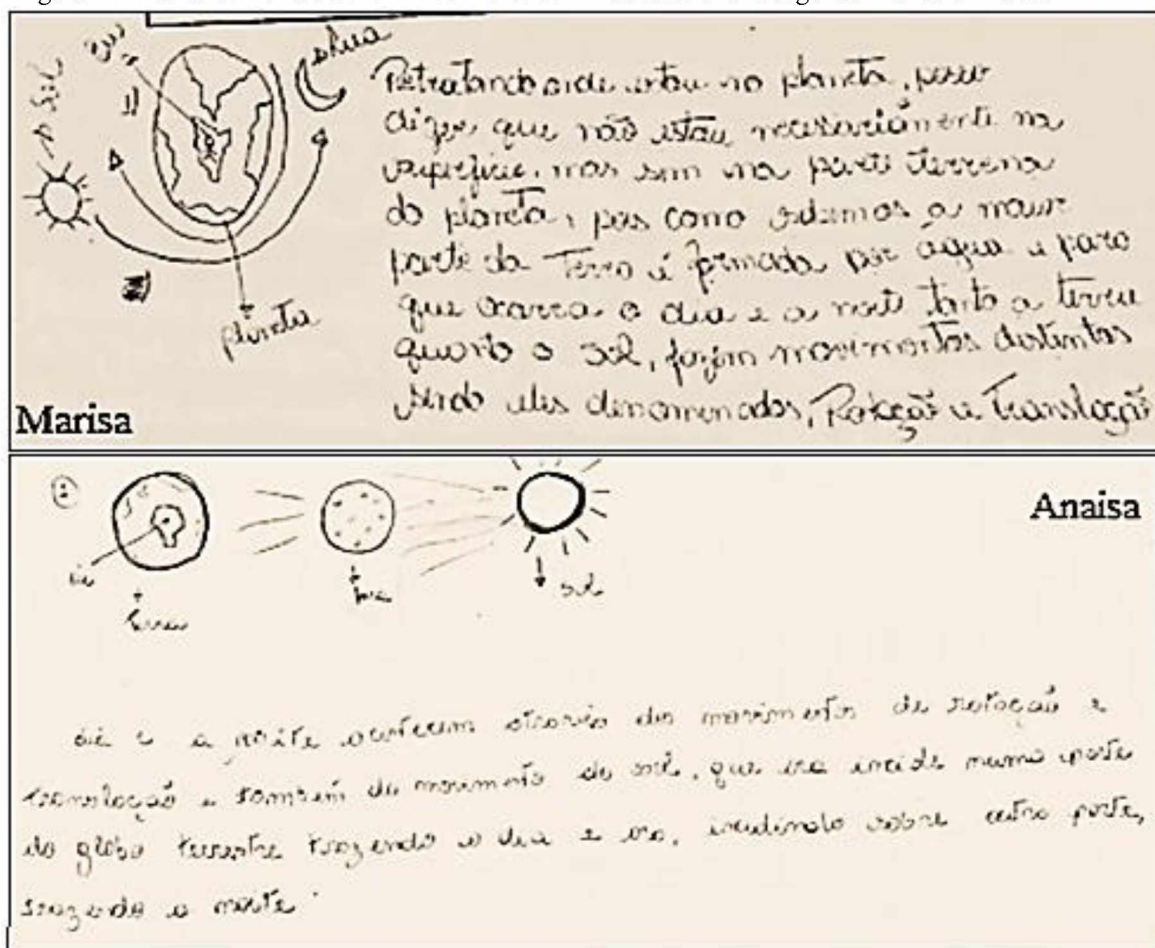 eu
Sol
1)
Lua
Retratando onde estou no planeta, posso
dizer que não estou necessariamente na
superfície, mas sim na parte terrena
do planeta, pois como sabemos a maior
parte da Terra é formada por água e para
que ocorra o dia e a noite tanto a terra
quanto o sol, fazem movimentos distintos
sendo eles denominados, Rotação e Translação
planeta
Marisa
Anaisa
eu
terra
lua
sol
dia e a noite acontecem através dos movimentos de rotação e
translação e também do movimento do sol, que ora incide numa parte
do globo terrestre trazendo o dia e ora, incidindo sobre outra parte,
trazendo a noite.